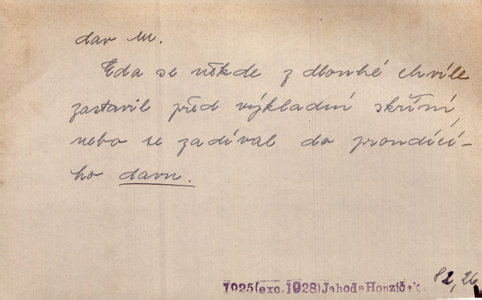 dav M.
Eda se někde z dlouhé chvíle
zastavil před výkladní skříní,
nebo se zadíval do proudící-
ho davu.
82,26
1925(exc.1928)Jahoda Honzíček